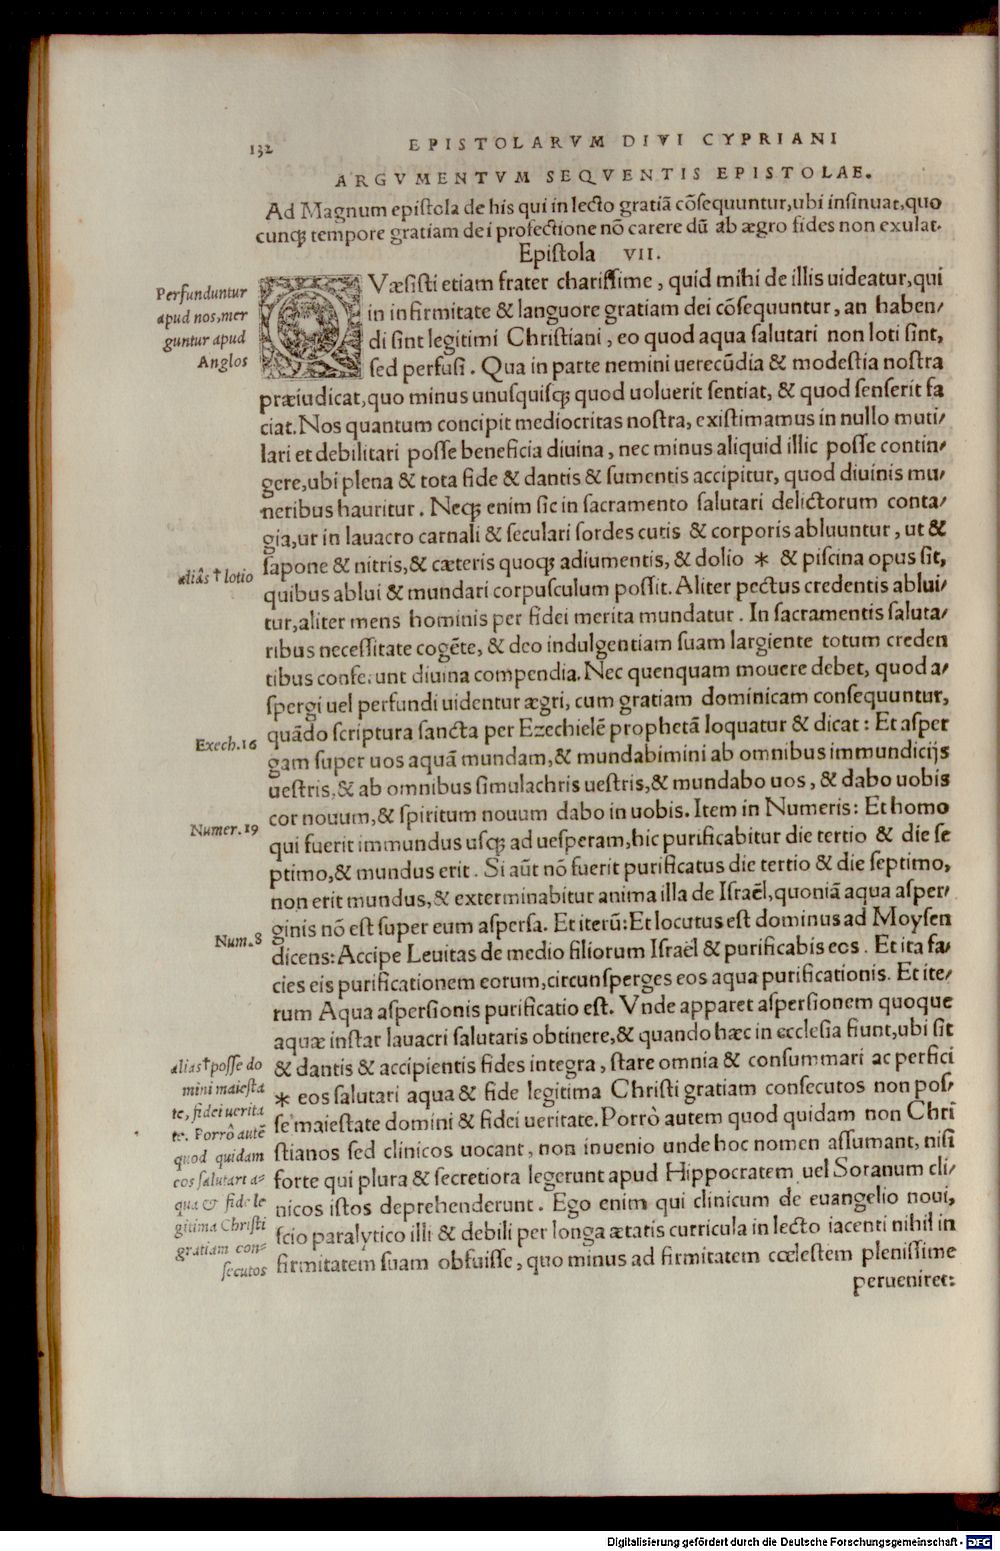 132 EPISTOLARVM DIVI CYPRIANI
ARGVMENTVM SEQVENTIS EPISTOLAE.
Ad Magnum epistola de his qui in lecto gratiã cõsequuntur, ubi insinuat, quo
cunqꝫ tempore gratiam dei profectione nõ carere dũ ab ægro fides non exulat.
Epistola VII.
Perfunduntur
apud nos, mer
guntur apud
Anglos
QVæsisti etiam frater charissime, quid mihi de illis uideatur, qui
in infirmitate & languore gratiam dei cõsequuntur, an haben/
di sint legitimi Christiani, eo quod aqua salutari non loti sint,
sed perfusi. Qua in parte nemini uerecũdia & modestia nostra
præiudicat, quo minus unusquisqꝫ quod uoluerit sentiat, & quod senserit fa
ciat. Nos quantum concipit mediocritas nostra, existimamus in nullo muti/
lari et debilitari posse beneficia diuina, nec minus aliquid illic posse contin/
gere, ubi plena & tota fide & dantis & sumentis accipitur, quod diuinis mu/
neribus hauritur. Necqꝫ enim sic in sacramento salutari delictorum conta/
gia, ut in lauacro carnali & seculari sordes cutis & corporis abluuntur, ut &
aliâs † lotio
sapone & nitris, & cæteris quoqꝫ adiumentis, & dolio * & piscina opus sit,
quibus ablui & mundari corpusculum possit. Aliter pectus credentis ablui/
tur, aliter mens hominis per fidei merita mundatur. In sacramentis saluta/
ribus necessitate cogẽte, & deo indulgentiam suam largiente totum creden
tibus conferunt diuina compendia. Nec quenquam mouere debet, quod a/
spergi uel perfundi uidentur ægri, cum gratiam dominicam consequuntur,
Exech.16
quãdo scriptura sancta per Ezechielẽ prophetã loquatur & dicat: Et asper
gam super uos aquã mundam, & mundabimini ab omnibus immundicijs
uestris, & ab omnibus simulachris uestris, & mundabo uos, & dabo uobis
cor nouum, & spiritum nouum dabo in uobis. Item in Numeris: Et homo
Numer.19
qui fuerit immundus usqꝫ ad uesperam, hic purificabitur die tertio & die se
ptimo, & mundus erit. Si aũt nõ fuerit purificatus die tertio & die septimo,
non erit mundus, & exterminabitur anima illa de Israël, quoniã aqua asper/
ginis nõ est super eum aspersa. Et iterũ: Et locutus est dominus ad Moysen
Num.8
dicens: Accipe Leuitas de medio filiorum Israël & purificabis eos. Et ita fa/
cies eis purificationem eorum, circunsperges eos aqua purificationis. Et ite/
rum Aqua aspersionis purificatio est. Vnde apparet aspersionem quoque
aquæ instar lauacri salutaris obtinere, & quando hæc in ecclesia fiunt, ubi sit
& dantis & accipientis fides integra, stare omnia & consummari ac perfici
* eos salutari aqua & fide legitima Christi gratiam consecutos non pos/
se maiestate domini & fidei ueritate. Porrò autem quod quidam non Chri
stianos sed clinicos uocant, non inuenio unde hoc nomen assumant, nisi
forte qui plura & secretiora legerunt apud Hippocratem uel Soranum cli/
nicos istos deprehenderunt. Ego enim qui clinicum de euangelio noui,
scio paralytico illi & debili per longa ætatis curricula in lecto iacenti nihil in
firmitatem suam obfuisse, quo minus ad firmitatem cœlestem plenissime
aliâs † posse do
mini maiesta
te, fidei uerita
te. Porrô autẽ
quod quidam
eos salutari a=
qua & fide le
gitima Christi
gratiam con=
secutos
perueniret:
Digitalisierung gefördert durch die Deutsche Forschungsgemeinschaft - DFG